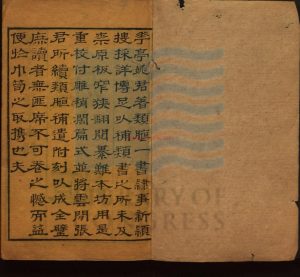 季亭姚君著類腋一書隸事新穎
搜採詳博足以補類書之所未及
柰原板窄狹翻閱綦難本坊用是
重校付雕稍闊篇式並將雲閒張
君所續類腋補遺附刻以成全璧
庶讀者無匪席不可卷之憾而益
便於巾笥之取携也夫
RY OF
RESS